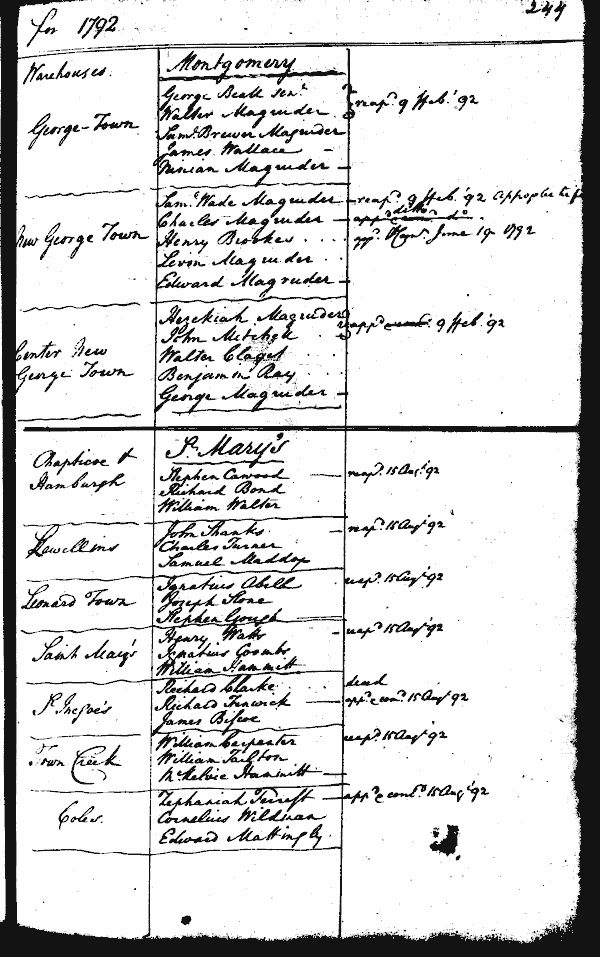 for 1792
244
Warehouses.
Montgomery
George-Town
George Beall Senr.
Walter Magruder reapd. 9 Feb. '92
Saml. Brewer Magruder
James Wallace
Ninian Magruder
New George Town
Saml. Wade Magruder reapd. 9 Feb. '92
Charles Magruder appd. ditto do.
Henry Brookes June 19 1792
Levin Magruder
Edward Magruder
Center New
George Town
Hezekiah Magruder
John Mitchell appd. 9 Feb. '92
Walter Claget
Benjamin Ray
George Magruder
St. Mary's
Chapticoe &
Hamburgh
Stephen Cawood reapd. 15 Augt. '92
Richard Bond
William Walter
Lewellins
John Shanks reapd. 15 Augt. '92
Charles Turner
Samuel Maddox
Leonard Town
Ignatius Abell reapd. 15 Augt. '92
Joseph Stone
Stephen Gough
Saint Mary's
Henry Watts reapd. 15 Augt. '92
Ignatius Coombs
William Hammitt
St. Inegoe's
Richard Clarke dead
Richard Fenwick appd. & comd. 15 Augt. '92
James Biscoe
Town Creek
William Carpenter reapd. 15 Augt. '92
William Tarlton
McKelvie Hammitt
Coles.
Zephaniah appd. & comd. 15 Augt. '92
Cornelius Wildman
Edward Mattingly